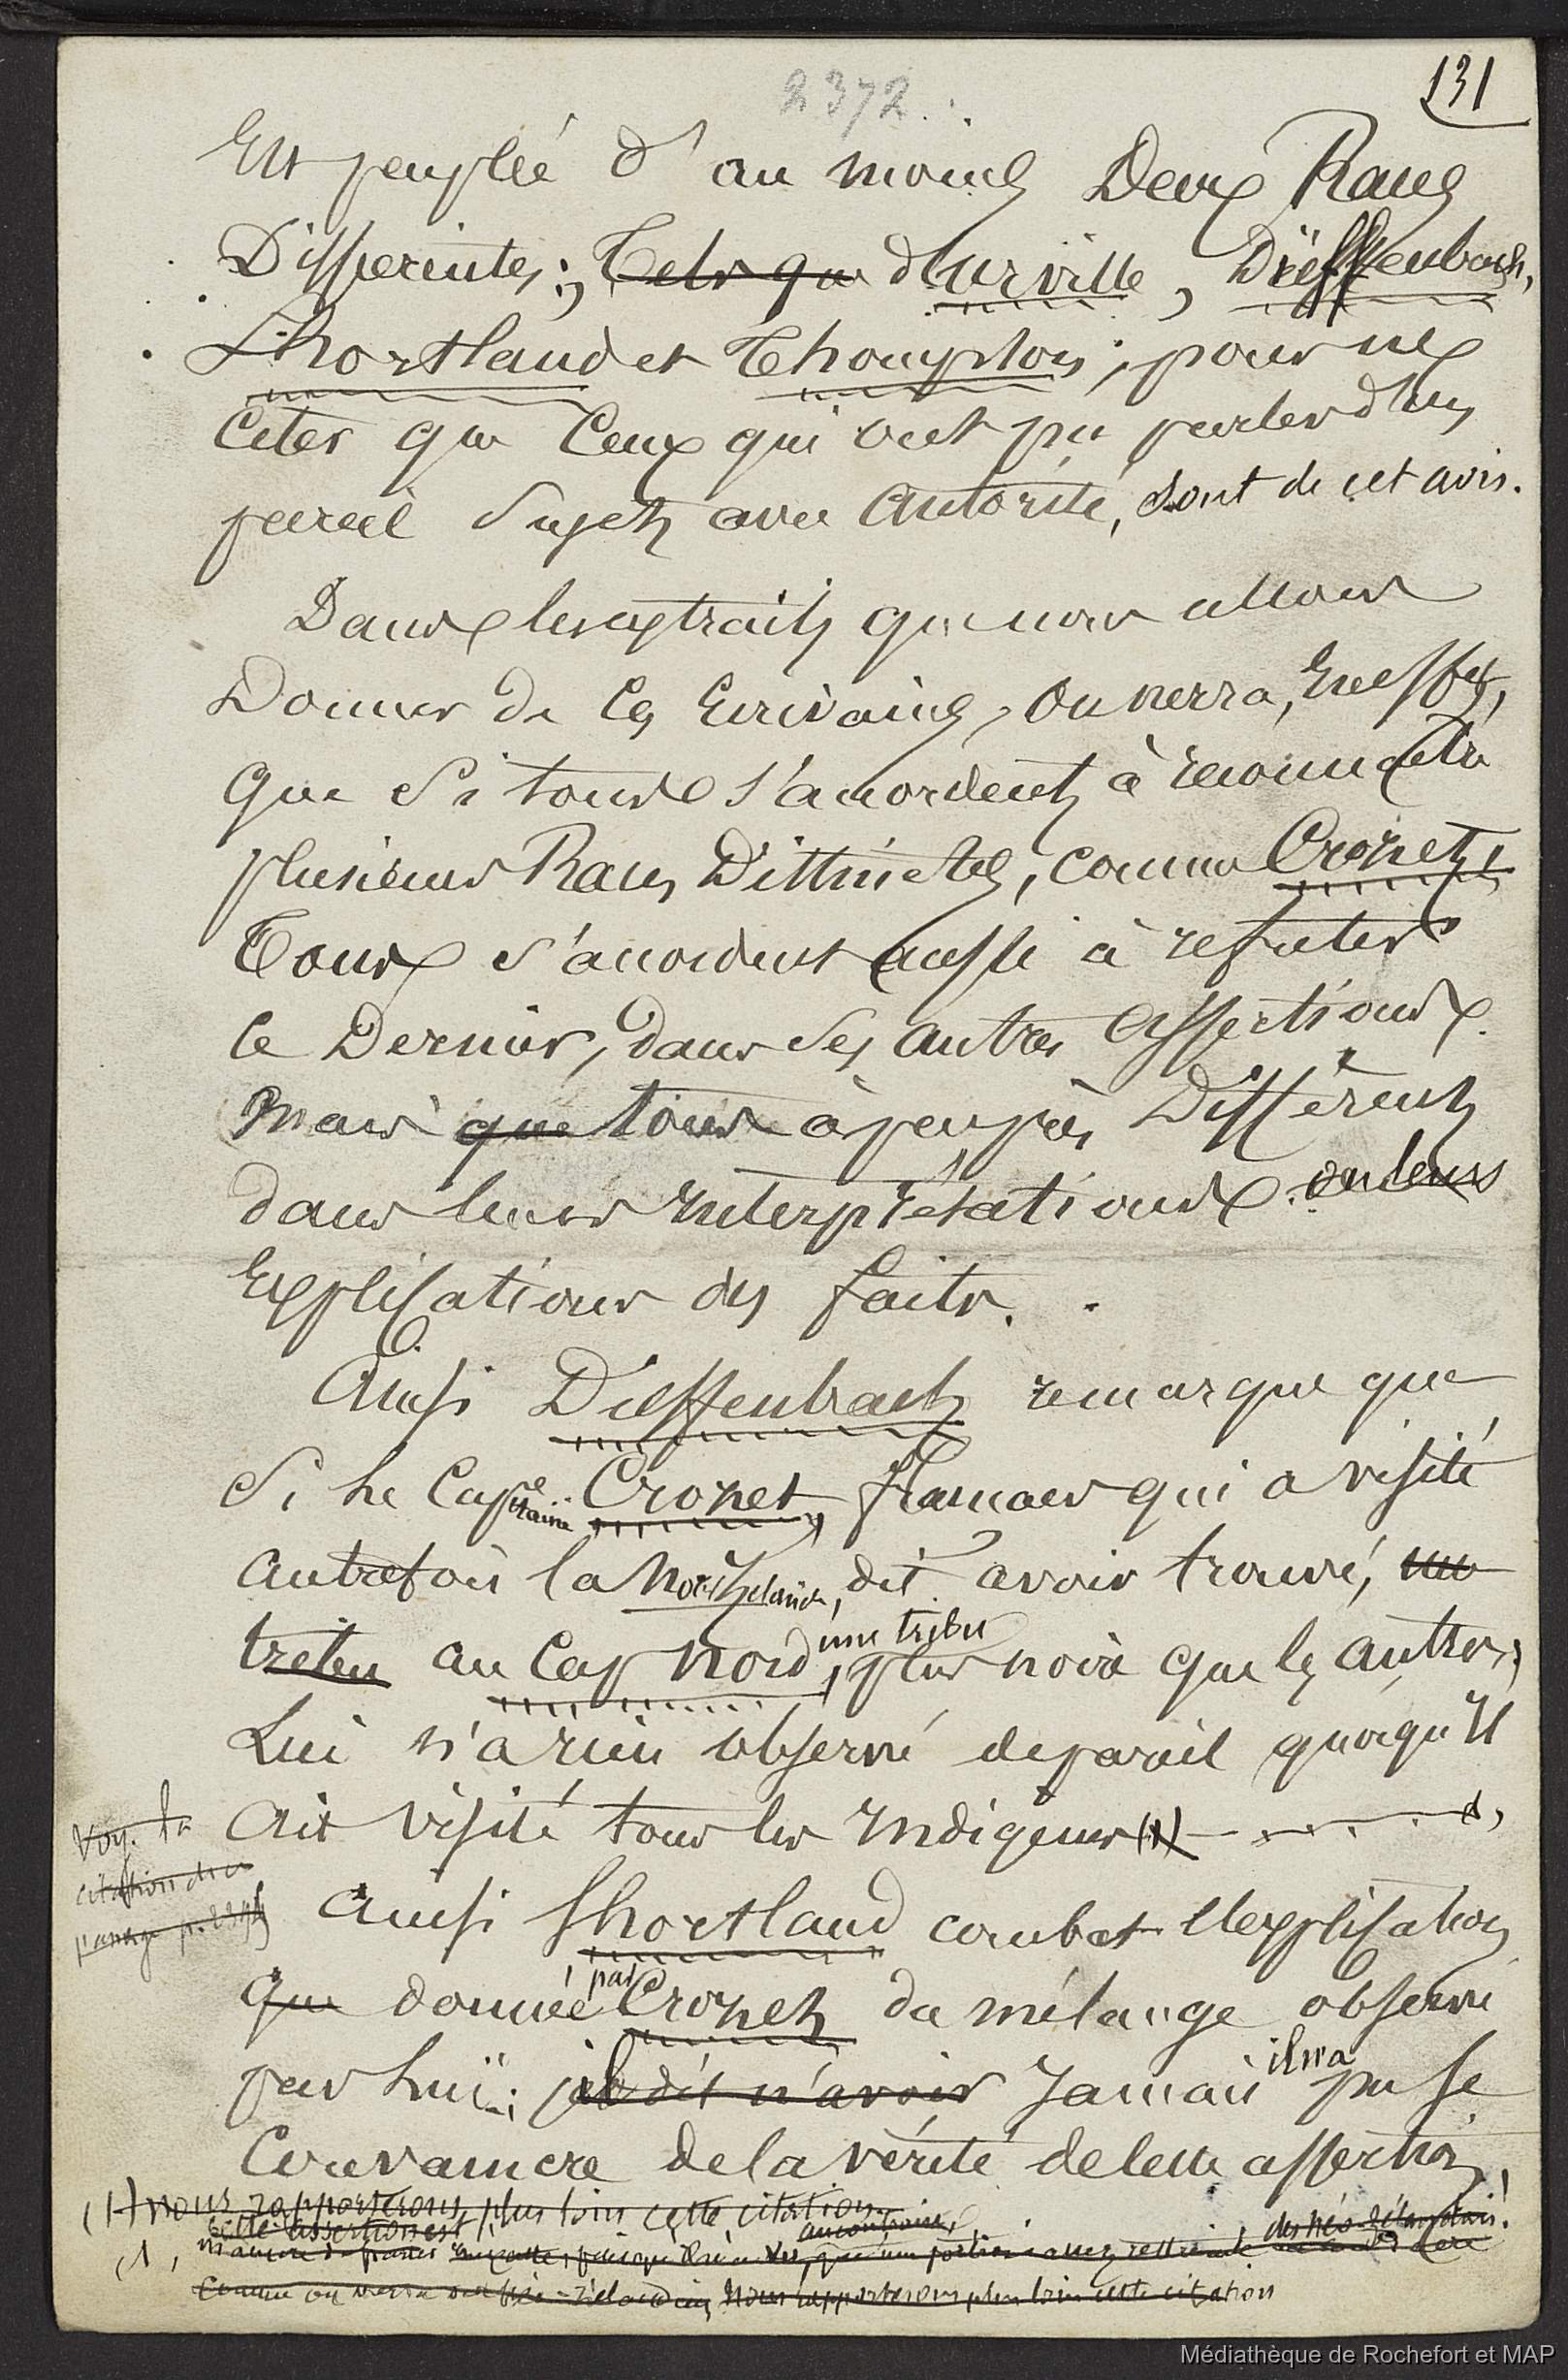 2372
131
Est peuplée d'au moins Deux Races
Differentes; Tels que d'Urville, Dieffenbach,
Shortland et Thompson, pour ne
Citer que Ceux qui ont pu parler d'un
pareil Sujet avec Autorité, sont de cet avis.
Dans les extraits que nous allons
Donner de Ces Ecrivains, on verra, En effet,
Que Si tous s'accordent à reconnaitre
plusieurs Races Distinctes, comme Crozet,
Tous s'accordent aussi à refuter
le Dernier, dans Ses autres Assertions
Mais que tous à peu près Different
dans leurs Interprétations ou leurs
Explications des faits.
Ainsi Dieffenbach remarque que
Si le Capitaine Crozet, français qui a visité
Autrefois la Nlle Zelande, dit avoir trouvé, une
tribu au Cap Nord, une tribu plus noire que les autres;
Lui n'a rien observé de pareil quoiqu'Il
Ait visité tous les Indigenes (1)
Voy. la
citation du
passage p.
Ainsi Shortland combat l'explication
que donnée par Crozet du mélange observé
par Lui: il dit n'avoir Jamais il n'a pu se
Convaincre de la vérité de cette assertion,
(1) nous rapporterons plus loin cette citation.
cette assertion est
au contraire,
des Néo-Zélandais.
(1,
Comme on verra Nous rapporterons plus loin cette citation
Médiathèque de Rochefort et MAP